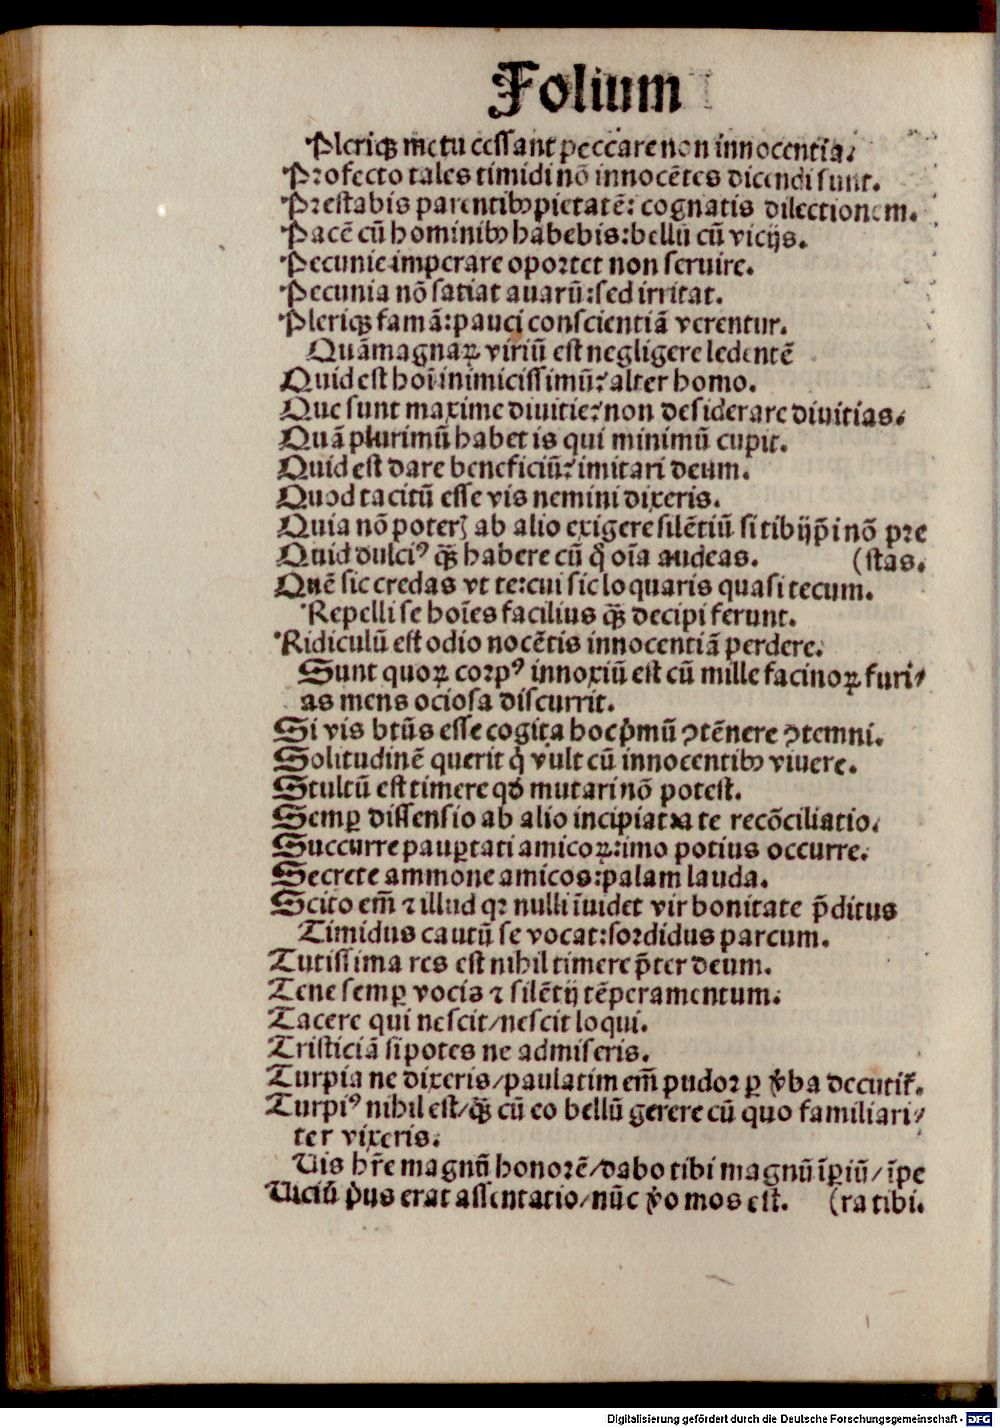 Folium
Pleriqꝫ metu cessant peccare non innocentia.
Profecto tales timidi nō innocētes dicendi sunt.
Prestabis parentibꝰ pietatē: cognatis dilectionem.
Pacē cū hominibꝰ habebis: bellū cū vicijs.
Pecunie imperare oportet non seruire.
Pecunia nō satiat auarū: sed irritat.
Pleriqꝫ famā: pauci conscientiā verentur.
Quāmagnaꝝ viriū est negligere ledentē
Quid est hoī inimicissimū? alter homo.
Que sunt maxime diuitie? non desiderare diuitias.
Quā plurimū habet is qui minimū cupit.
Quid est dare beneficiū? imitari deum.
Quod tacitū esse vis nemini dixeris.
Quia nō poterꝭ ab alio exigere silētiū si tibijp̄i nō pre
Quid dulciꝰ qꝫ̄ habere cū q̇ oīa audeas. (stas.
Quē sic credas vt te: cui sic loquaris quasi tecum.
Repelli se hoīes facilius qꝫ̄ decipi ferunt.
Ridiculū est odio nocētis innocentiā perdere.
Sunt quoꝝ corpꝰ innoxiū est cū mille facinoꝝ furi⸗
as mens ociosa discurrit.
Si vis btūs esse cogita hoc p̍mū ꝯtēnere ꝯtemni.
Solitudinē querit q̇ vult cū innocentibꝰ viuere.
Stultū est timere qđ mutari nō potest.
Semꝑ dissensio ab alio incipiat a te recōciliatio.
Succurre pauꝑtati amicoꝝ: imo potius occurre.
Secrete ammone amicos: palam lauda.
Scito em̄ ⁊ illud qꝛ nulli īuidet vir bonitate p̄ditus
Timidus cautū se vocat: sordidus parcum.
Tutissima res est nihil timere p̄ter deum.
Tene semꝑ vocis ⁊ silētij tēperamentum.
Tacere qui nescit/nescit loqui.
Tristiciā si potes ne admiseris.
Turpia ne dixeris/paulatim em̄ pudor ꝑ v̍ba decutiť.
Turpiꝰ nihil est/qꝫ̄ cū eo bellū gerere cū quo familiari⸗
ter vixeris.
Vis hr̄e magnū honorē/dabo tibi magnū īꝑiū/īpe
Viciū p̍us erat assentatio/nūc v̍o mos est. (ra tibi.
Digitalisierung gefördert durch die Deutsche Forschungsgemeinschaft - DFG